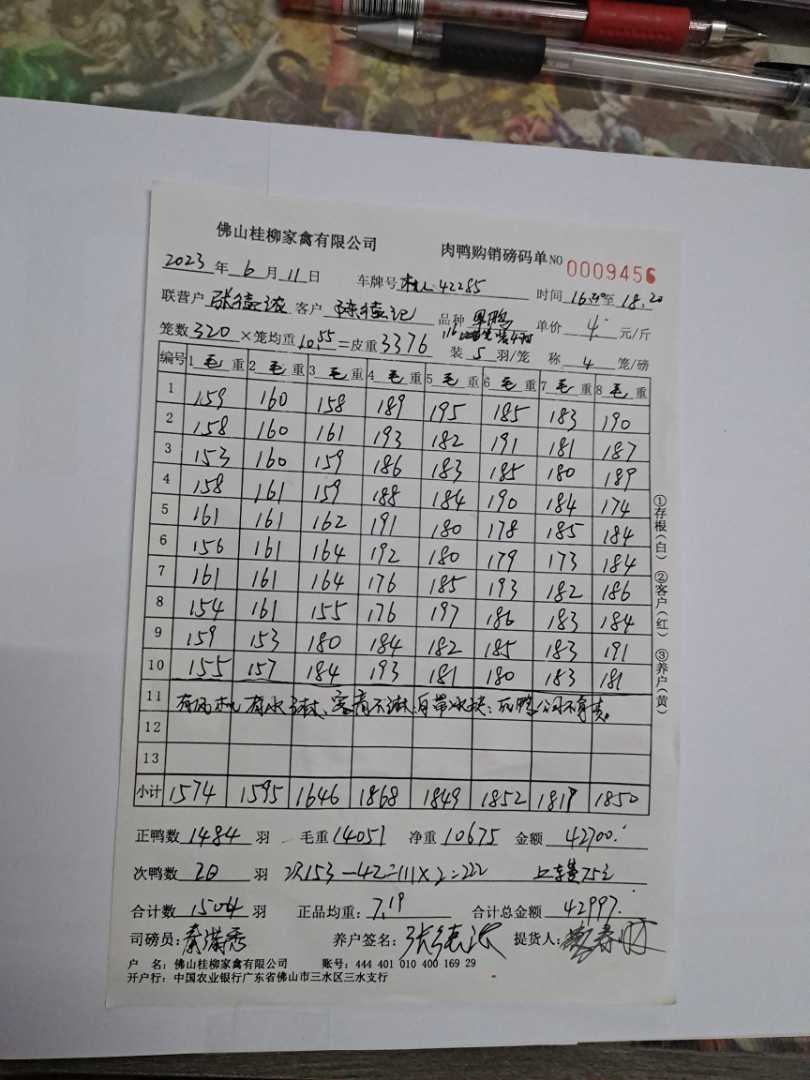 佛山桂柳家禽有限公司 肉鸭购销磅码单 NO 0009456
2023 年 6 月 11 日 车牌号 42285 时间 16 至 18.20
联营户 张德浓 客户 陈德记 品种 单价 4 元/斤
笼数 320 ×笼均重 10.55 =皮重 3376 装 5 羽/笼 称 4 笼/磅
编号 1 毛 重 2 毛 重 3 毛 重 4 毛 重 5 毛 重 6 毛 重 7 毛 重 8 毛 重
1 159 160 158 189 195 185 183 190
2 158 160 161 193 182 191 181 187
3 153 160 159 186 183 185 180 189
4 158 161 159 188 184 190 184 174
5 161 161 162 191 180 178 185 184
6 156 161 164 192 180 179 173 184
7 161 161 164 176 185 193 182 186
8 154 161 155 176 197 186 183 184
9 159 153 180 184 182 185 183 191
10 155 157 184 193 181 180 183 181
11 有风机 有水 不淋 自带冰块、死鸭公司不负责。
12
13
小计 1574 1595 1646 1868 1849 1852 1817 1850
正鸭数 1484 羽 毛重 14051 净重 10675 金额 42700.
次鸭数 20 羽 次153-42=111×2=222 上车费75元
合计数 1504 羽 正品均重: 7.19 合计总金额 42997.
司磅员: 秦满秀 养户签名: 张德浓 提货人:
户 名: 佛山桂柳家禽有限公司 账号: 444 401 010 400 169 29
开户行: 中国农业银行广东省佛山市三水区三水支行
①存根(白) ②客户(红) ③养户(黄)